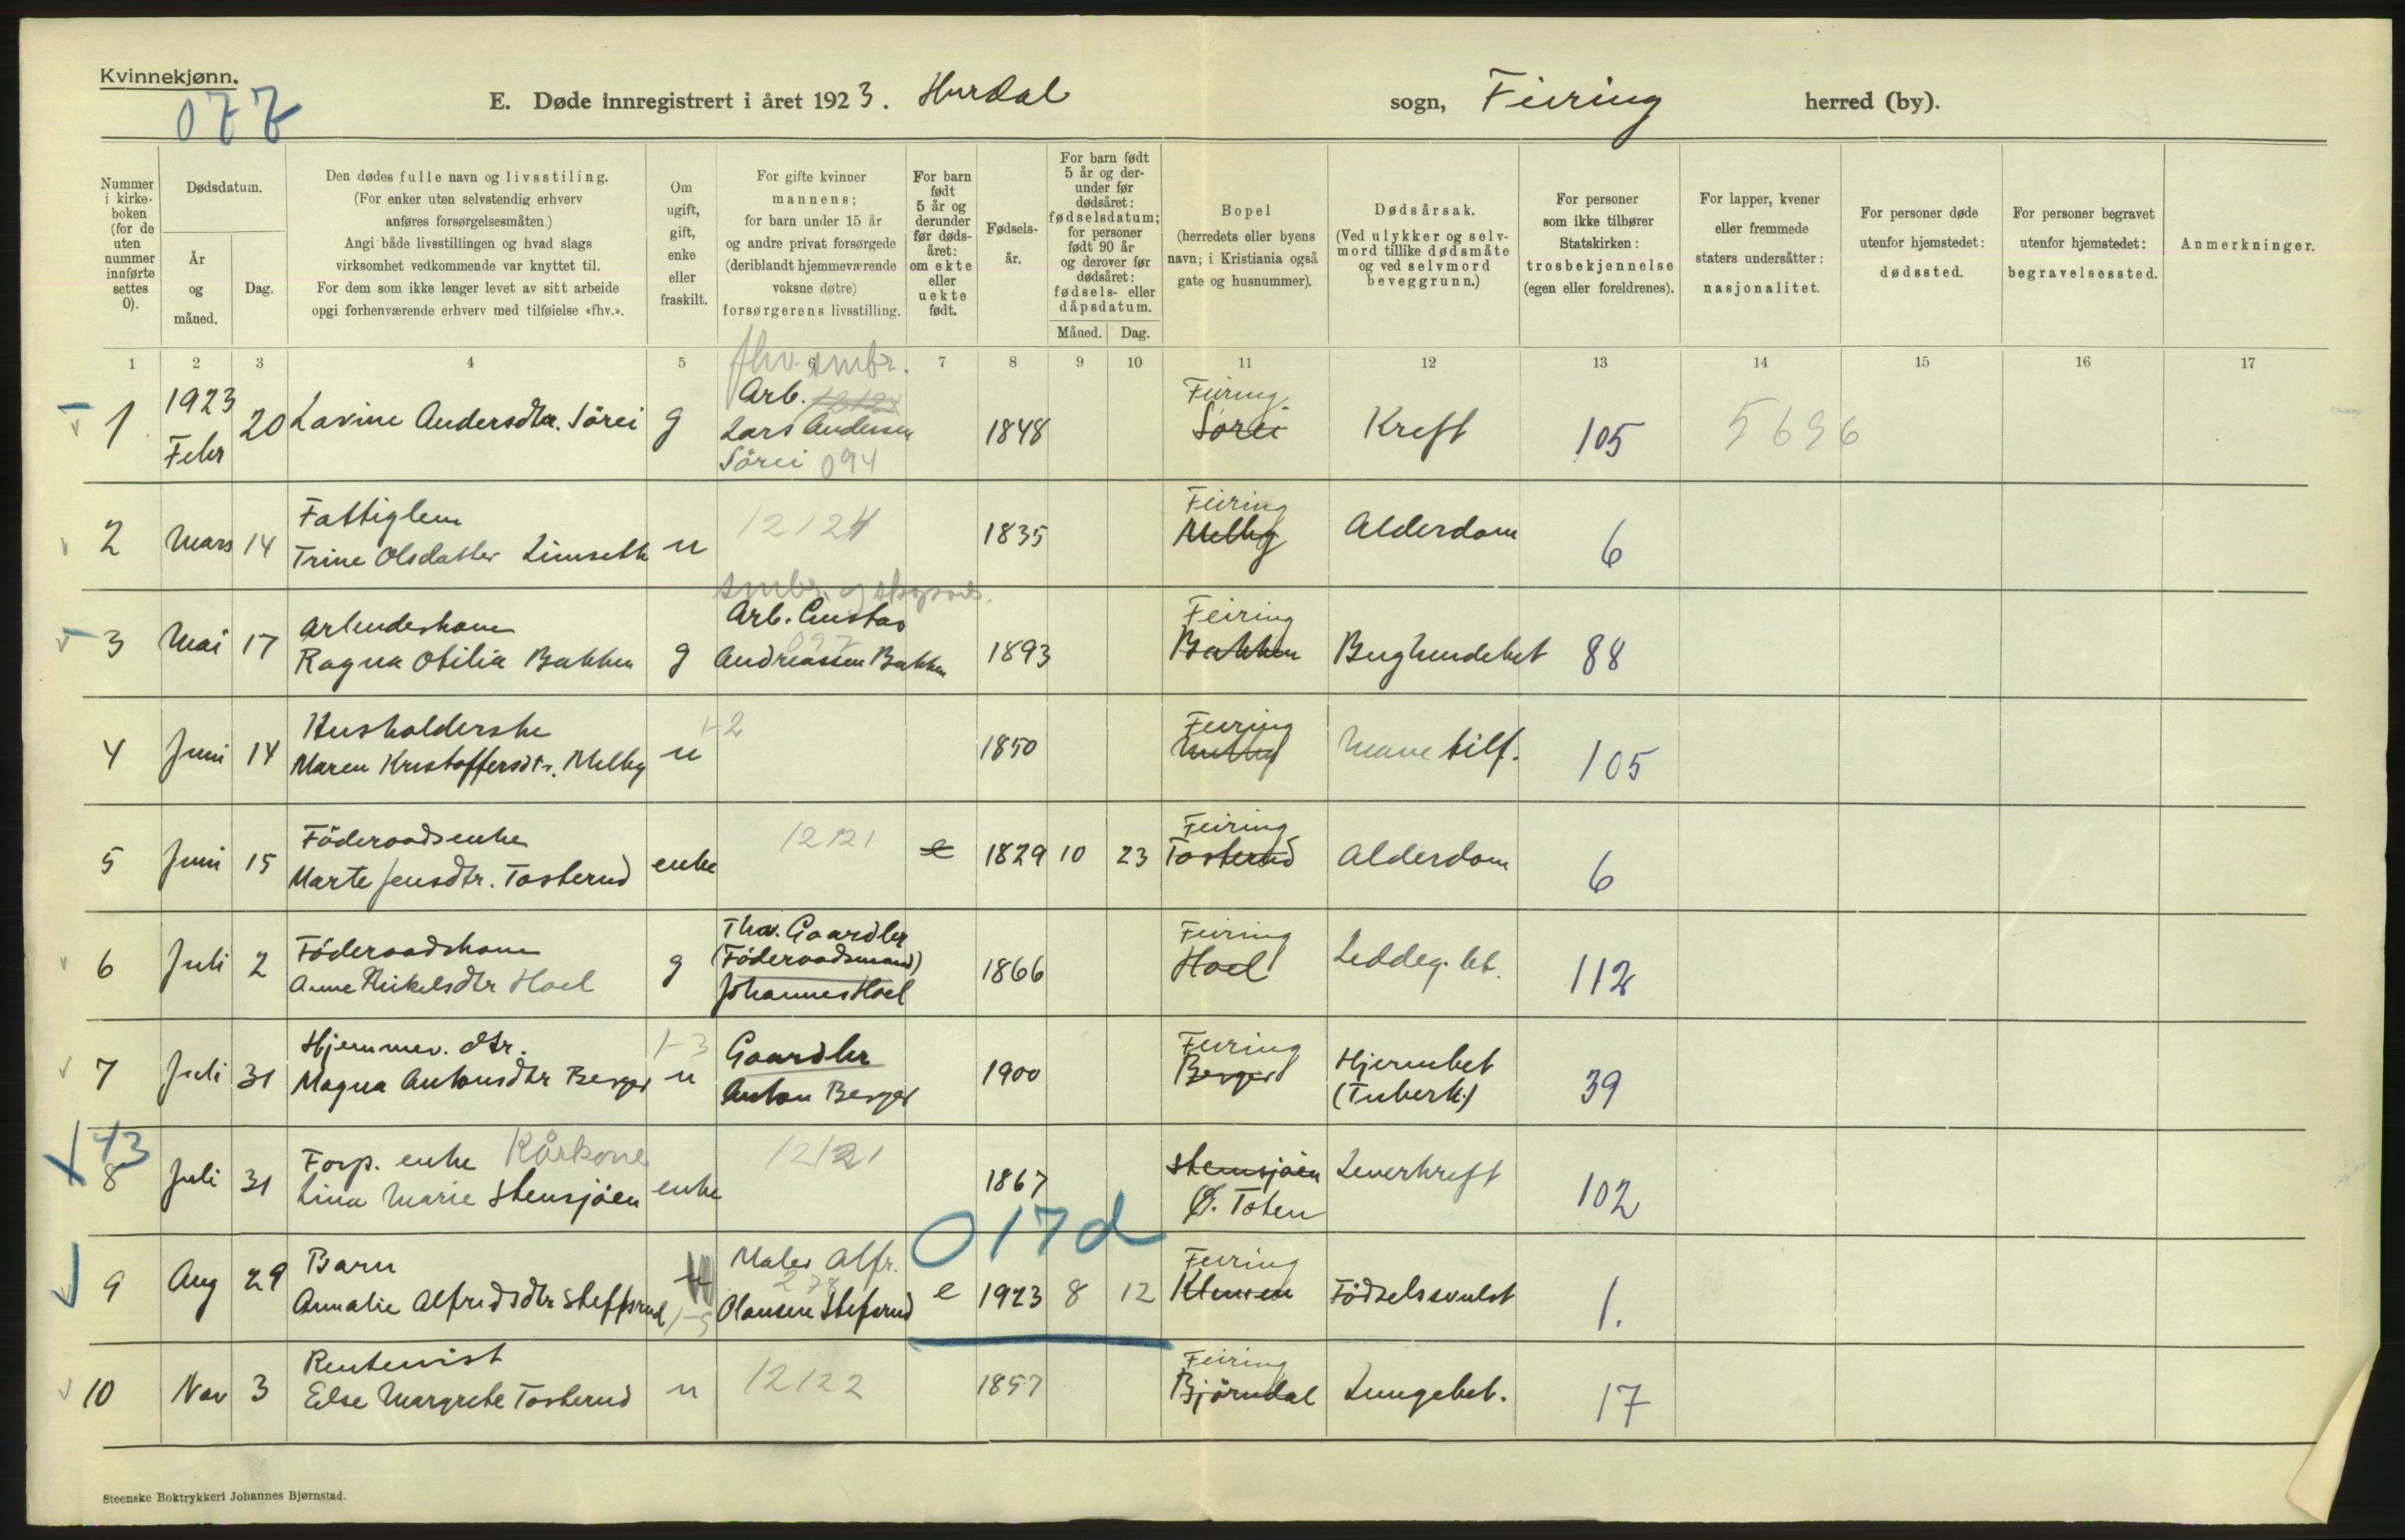 Kvinnekjønn.
077
E. Døde innregistrert i året 1923. Hurdal sogn, Feiring herred (by).
Nummer i kirke-boken (for de uten nummer innførte settes 0).
Dødsdatum.
År og måned.
Dag.
Den dødes fulle navn og livsstiling.
(For enker uten selvstendig erhverv
anføres forsørgelsesmåten.)
Angi både livsstillingen og hvad slags
virksomhet vedkommende var knyttet til.
For dem som ikke lenger levet av sitt arbeide
opgi forhenværende erhverv med tilføielse «fhv.».
Om ugift, gift, enke eller fraskilt.
For gifte kvinner
mannens;
for barn under 15 år
og andre privat forsørgede
(deriblandt hjemmeværende
voksne døtre)
forsørgerens livsstilling.
For barn født 5 år og derunder før døds-året: om ekte eller uekte født.
Fødsels-år.
For barn født 5 år og der-under før dødsåret: fødselsdatum; for personer født 90 år og derover før dødsåret: fødsels- eller dåpsdatum.
Måned. Dag.
Bopel
(herredets eller byens
navn; i Kristiania også
gate og husnummer).
Dødsårsak.
(Ved ulykker og selv-
mord tillike dødsmåte
og ved selvmord
beveggrunn.)
For personer
som ikke tilhører
Statskirken:
trosbekjennelse
(egen eller foreldrenes).
For lapper, kvener
eller fremmede
staters undersåtter:
nasjonalitet.
For personer døde
utenfor hjemstedet:
dødssted.
For personer begravet
utenfor hjemstedet:
begravelsessted.
Anmerkninger.
1 2 3 4 5 6 7 8 9 10 11 12 13 14 15 16 17
fhv. smbr.
1 1923 Febr 20 Lavine Andersdtr. Sörei g Arb. 12124 Lars Andersen Sörei 094 1848 Feiring Sörei Kreft 105 5696
2 Mars 14 Fattiglem Trine Olsdatter Limseth u 12124 1835 Feiring Melby Alderdom 6
smbr. og skogsarb.
3 Mai 17 Arbeiderkone Ragna Otilia Bakken g Arb. Gustav 097 Andreassen Bakken 1893 Feiring Bakken Brysthindebet 88
4 Juni 14 Husholderske Maren Kristoffersdtr. Melby u 1-2 1850 Feiring Melby Mavetilf. 105
5 Juni 15 Föderaadsenke Marte Jensdtr. Tosterud enke 12121 e 1829 10 23 Feiring Tosterud Alderdom 6
6 Juli 2 Föderaadskone Anne Mikelsdtr Hoel g Fhv. Gaardbr (Föderaadsmand) Johannes Hoel 1866 Feiring Hoel Leddeg. bet. 112
7 Juli 31 Hjemmev. dtr. Magna Antonsdtr Berger 1-3 u Gaardbr Anton Berger 1900 Feiring Berger Hjernebet (Tuberk.) 39
43
8 Juli 31 Forp. enke Kårkone Lina Marie Stensjöen enke 12121 1867 Stensjöen Ø. Toten Leverkreft 102
017d
9 Aug 29 Barn Annalie Alfredsdtr Steffsrud u 1-5 Maler Alfr. 278 Olausen Stefsrud e 1923 8 12 Feiring Födselssvulst 1.
10 Nov 3 Rentenist Else Margrete Tosterud u 12122 1857 Feiring Björndal Lungebet. 17
Steenske Boktrykkeri Johannes Bjørnstad.